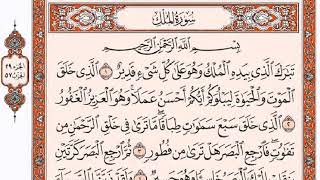 سُورَةُ المُلْكِ
الجزء ٢٩
الحزب ٥٧
بِسْمِ ٱللَّهِ ٱلرَّحْمَٰنِ ٱلرَّحِيمِ
تَبَٰرَكَ ٱلَّذِى بِيَدِهِ ٱلْمُلْكُ وَهُوَ عَلَىٰ كُلِّ شَىْءٍ قَدِيرٌ ١ ٱلَّذِى خَلَقَ
ٱلْمَوْتَ وَٱلْحَيَوٰةَ لِيَبْلُوَكُمْ أَيُّكُمْ أَحْسَنُ عَمَلًا وَهُوَ ٱلْعَزِيزُ ٱلْغَفُورُ
٢ ٱلَّذِى خَلَقَ سَبْعَ سَمَٰوَٰتٍ طِبَاقًا مَّا تَرَىٰ فِى خَلْقِ ٱلرَّحْمَٰنِ مِن
تَفَٰوُتٍ فَٱرْجِعِ ٱلْبَصَرَ هَلْ تَرَىٰ مِن فُطُورٍ ٣ ثُمَّ ٱرْجِعِ ٱلْبَصَرَ كَرَّتَيْنِ